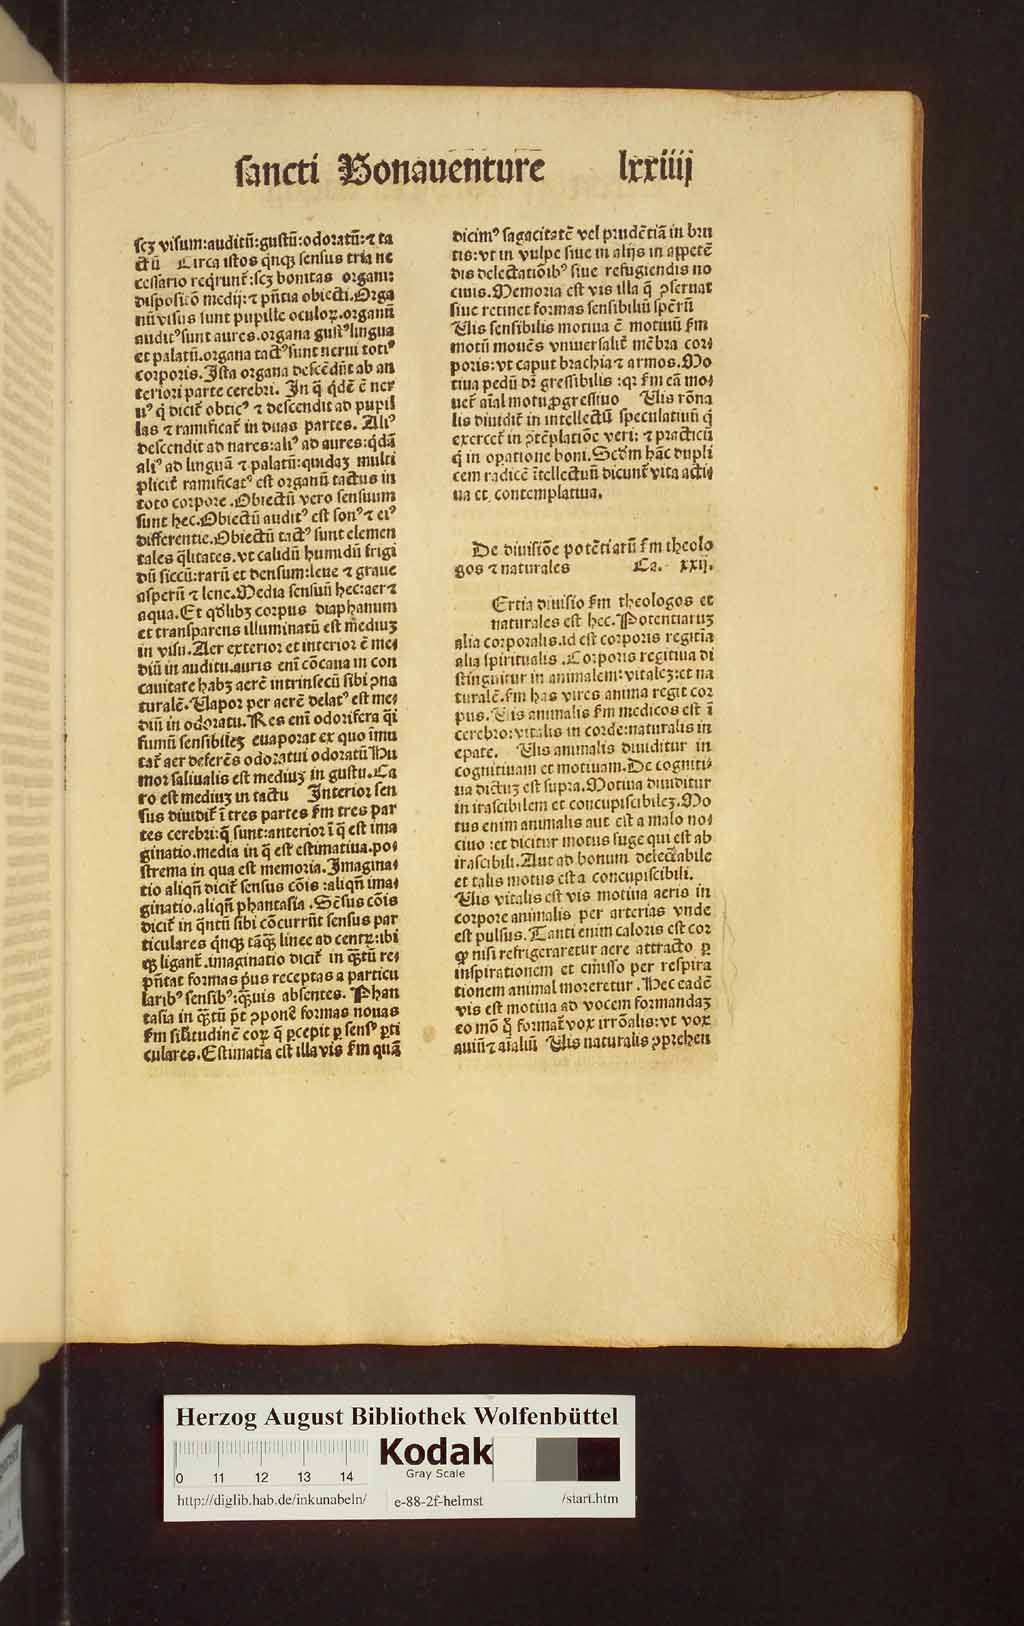 sancti Bonauenture lxxiiij
scʒ visum:auditū:gustū:odoratū:⁊ ta
ctū Circa istos qͥnqʒ sensus tria ne
cessario reqͥrunt̉:scʒ bonitas organi:
dispositō medij:⁊ pn̄tia obiecti.Orga
nū visus sunt pupille oculoꝝ.organū
auditꝰ sunt aures.organa gustꝰ lingua
et palatū.organa tactꝰ sunt nerui totiꝰ
corporis.Ista organa descēdūt ab an
teriori parte cerebri. In q̄ qͥdē ē ner
uꝰ q̇ dicit̉ obticꝰ ⁊ descendit ad pupil
las ⁊ ramificat̉ in duas partes. Aliꝰ
descendit ad nares:aliꝰ ad aures:qͥdā
aliꝰ ad linguā ⁊ palatū:quidaʒ multi
plicit̉ ramificatꝰ est organū tactus in
toto corpore.Obiectū vero sensuum
sunt hec.Obiectū auditꝰ est sonꝰ ⁊ eiꝰ
differentie.Obiectū tactꝰ sunt elemen
tales q̄litates.vt calidū humidū frigi
dū siccū:rarū et densum:leue ⁊ graue
asperū ⁊ lene.Media sensuū hec:aer ⁊
aqua.Et qd̓libʒ corpus diaphanum
et transparens illuminatū est mediuʒ
in visu.Aer exterior et interior ē me⸗
diū in auditu.auris enī cōcaua in con
cauitate habʒ aerē intrinsecū sibi ꝯna
turalē.Vapor per aerē delatꝰ est me⸗
diū in odoratu.Res enī odorifera q̄i
fumū sensibileʒ euaporat ex quo īmu
tat̉ aer deferēs odoratui odoratū Hu
mor saliualis est mediuʒ in gustu.Ca
ro est mediuʒ in tactu Interior sen
sus diuidit̉ ī tres partes fm tres par
tes cerebri:q̄ sunt:anterior ī q̄ est ima
ginatio.media in q̄ est estimatiua.po⸗
strema in qua est memoria.Imagina⸗
tio aliqn̄ dicit̉ sensus cōis:aliqn̄ ima⸗
ginatio.aliqn̄ phantasia.Sēsus cōis
dicit̉ in qͣntū sibi cōcurrūt sensus par
ticulares qͥnqʒ tāqʒ linee ad centꝝ:ibi
qʒ ligant̉.imaginatio dicit̉ in qͣntū re⸗
pn̄tat formas pͥus receptas a particu
laribꝰ sensibꝰ:qͣuis absentes. Phan
tasia in qͣntū pt̄ ꝓponē formas nouas
fm sil̓itudinē coꝝ q̄ ꝑcepit ꝑ sensꝰ ꝑti
culares.Estimatia est illa vis fm quā
dicimꝰ sagacitatē vel prudētiā in bru
tis:vt in vulpe siue in alijs in appetē
dis delectatiōibꝰ siue refugiendis no
ciuis.Memoria est vis illa q̄ ꝯseruat
siue retinet formas sensibiliū sperū
Uis sensibilis motiua ē motiuū fm
motū mouēs vniuersalit̉ mēbra cor⸗
poris:vt caput brachia ⁊ armos.Mo
tiua pedū dr̄ gressibilis:qr fm eā mo⸗
uet̉ aīal motu ꝓgressiuo Uis rōna
lis diuidit̉ in intellectū speculatiuū q̇
exercet̉ in ꝯtēplatiōe veri: ⁊ practicū
q̇ in oꝑatione boni.Scd̓m hāc dupli
cem radicē ītellectuū dicunt̉ vita acti⸗
ua et contemplatiua.
De diuisiōe potētiarū fm theolo
gos ⁊ naturales Ca. xxij.
Ertia diuisio fm theologos et
naturales est hec.Potentiaruʒ
alia corporalis.id est corporis regitia
alia spiritualis.Corporis regitiua di
stinguitur in animalem:vitaleʒ:et na
turalē.fm has vires anima regit cor
pus.Uis animalis fm medicos est ī
cerebro:vitalis in corde:naturalis in
epate. Uis animalis diuiditur in
cognitiuam et motiuam.De cogniti⸗
ua dictuʒ est supra.Motiua diuiditur
in irascibilem et concupiscibileʒ.Mo
tus enim animalis aut est a malo no⸗
ciuo:et dicitur motus fuge qui est ab
irascibili.Aut ad bonum delectabile
et talis motus est a concupiscibili.
Uis vitalis est vis motiua aeris in
corpore animalis per arterias vnde
est pulsus.Tanti enim caloris est cor
ꝙ nisi refrigeraretur aere attracto ꝑ
inspirationem et emisso per respira
tionem animal moreretur.Hec eadē
vis est motiua ad vocem formandaʒ
eo mō q̇ format̉ vox irrōalis:vt vox
auiū ⁊ aīaliū Uis naturalis ꝯprehen
Herzog August Bibliothek Wolfenbüttel
Kodak
Gray Scale
0 11 12 13 14
http://diglib.hab.de/inkunabeln/ e-88-2f-helmst /start.htm